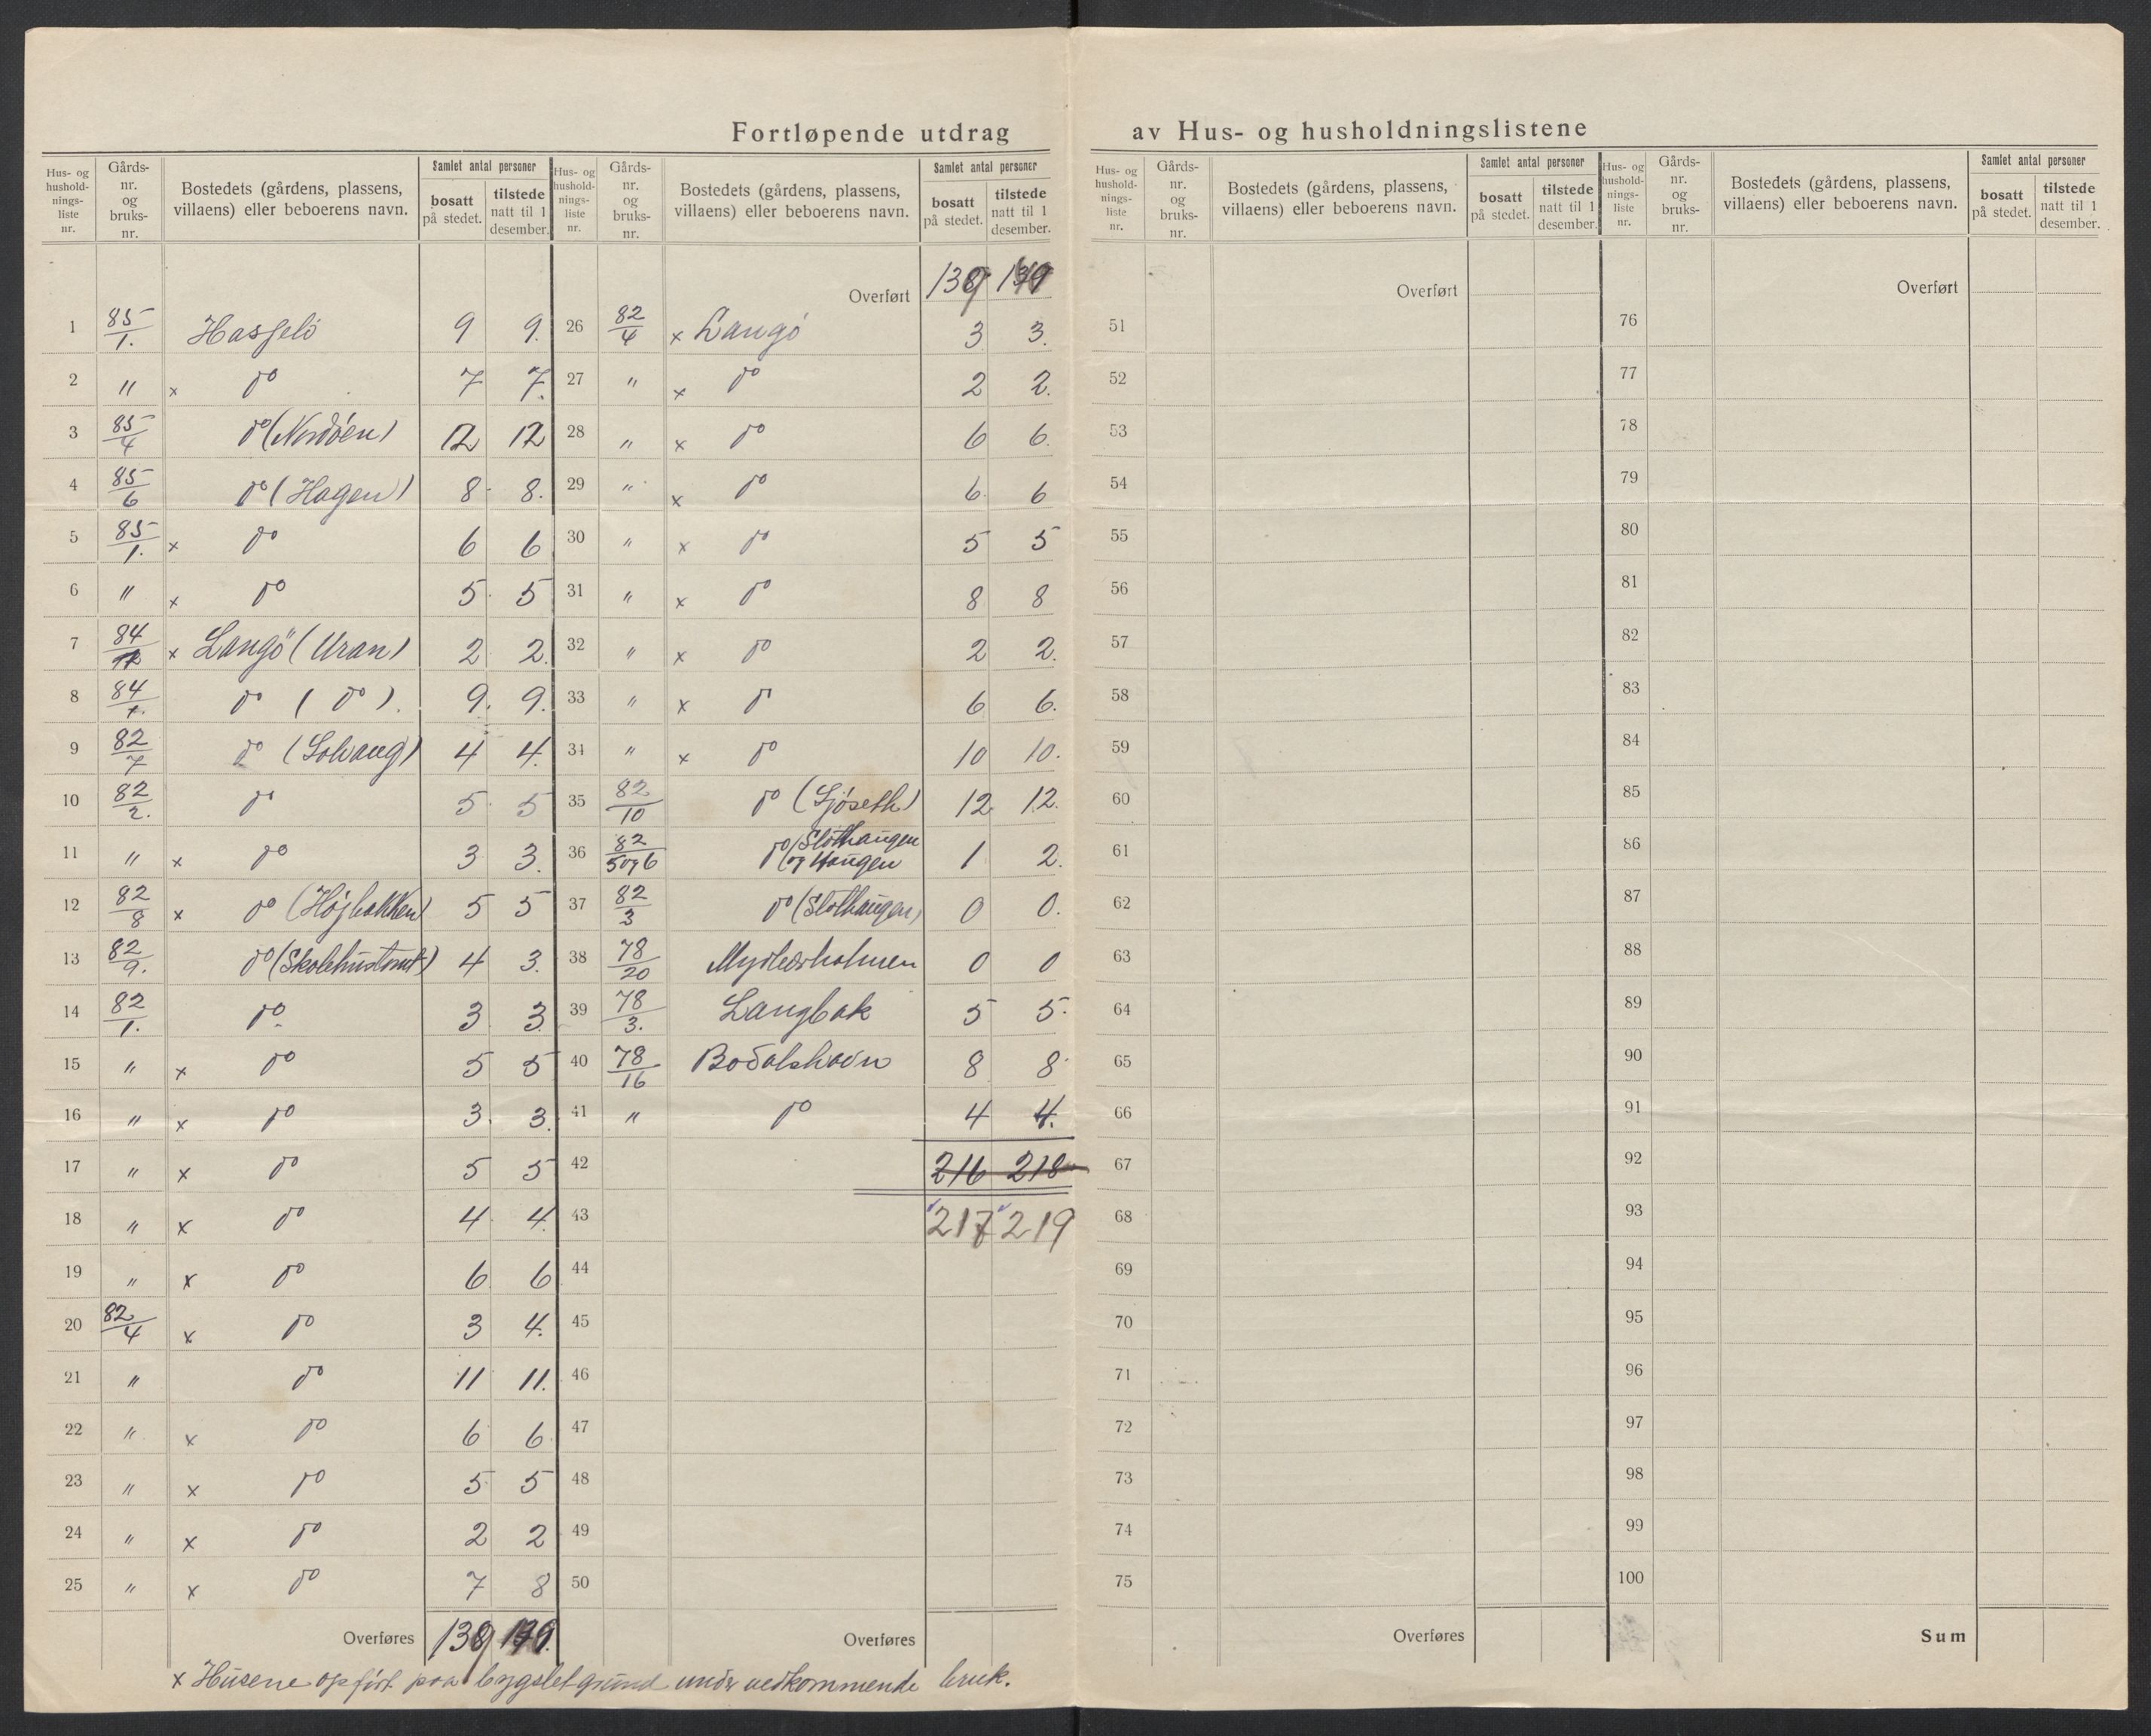 Fortløpende utdrag av Hus- og husholdningslistene
Hus- og hushold- nings- liste nr. Gårds- nr. og bruks- nr. Bostedets (gårdens, plassens, villaens) eller beboerens navn. Samlet antal personer bosatt på stedet. tilstede natt til 1 desember.
Hus- og hushold- nings- liste nr. Gårds- nr. og bruks- nr. Bostedets (gårdens, plassens, villaens) eller beboerens navn. Samlet antal personer bosatt på stedet. tilstede natt til 1 desember.
Hus- og hushold- nings- liste nr. Gårds- nr. og bruks- nr. Bostedets (gårdens, plassens, villaens) eller beboerens navn. Samlet antal personer bosatt på stedet. tilstede natt til 1 desember.
Hus- og hushold- nings- liste nr. Gårds- nr. og bruks- nr. Bostedets (gårdens, plassens, villaens) eller beboerens navn. Samlet antal personer bosatt på stedet. tilstede natt til 1 desember.
1 85/1. Hasselö 9 9.
2 " x do 7 7.
3 85/4 do (Nordöen) 12 12
4 85/6 do (Hagen) 8 8.
5 85/1. x do 6 6
6 " x do 5 5
7 84/ x Langö (Uran) 2 2.
8 84/1. do (do). 9. 9.
9 82/7 do (Solvang) 4 4.
10 82/2. do 5 5
11 " x do 3 3.
12 82/8 x do (Højbakken) 5 5
13 82/9. do (Skolehustomt) 4 3.
14 82/1. do 3 3
15 " x do 5 5
16 " x do 3. 3.
17 " x do 5 5
18 " x do 4 4.
19 " x do 6 6
20 82/4 x do 3 4.
21 " do 11 11.
22 " x do 6 6
23 " x do 5 5
24 " x do 2 2
25 " x do 7 8
Overføres 139
Overført 139
26 82/4 x Langö 3 3.
27 " x do 2 2.
28 " x do 6 6.
29 " x do 6. 6
30 " x do 5 5
31 " x do 8 8
32 " x do 2 2.
33 " x do 6 6.
34 " x do 10 10.
35 82/10 do (Sjöseth) 12 12.
36 82/5og6 do (Slothaugen og Haugen 1 2.
37 82/3 do (Slothaugen) 0 0.
38 78/20 0 0
39 78/3. Langbak 5 5.
40 78/16 Bodalshavn 8 8
41 " do 4 4.
42 216 218
43 217 219
44
45
46
47
48
49
50
Overføres
Overført
51
52
53
54
55
56
57
58
59
60
61
62
63
64
65
66
67
68
69
70
71
72
73
74
75
Overføres
Overført
76
77
78
79
80
81
82
83
84
85
86
87
88
89
90
91
92
93
94
95
96
97
98
99
100
Sum
x Husene opfört paa bygslet grund under vedkommende bruk.